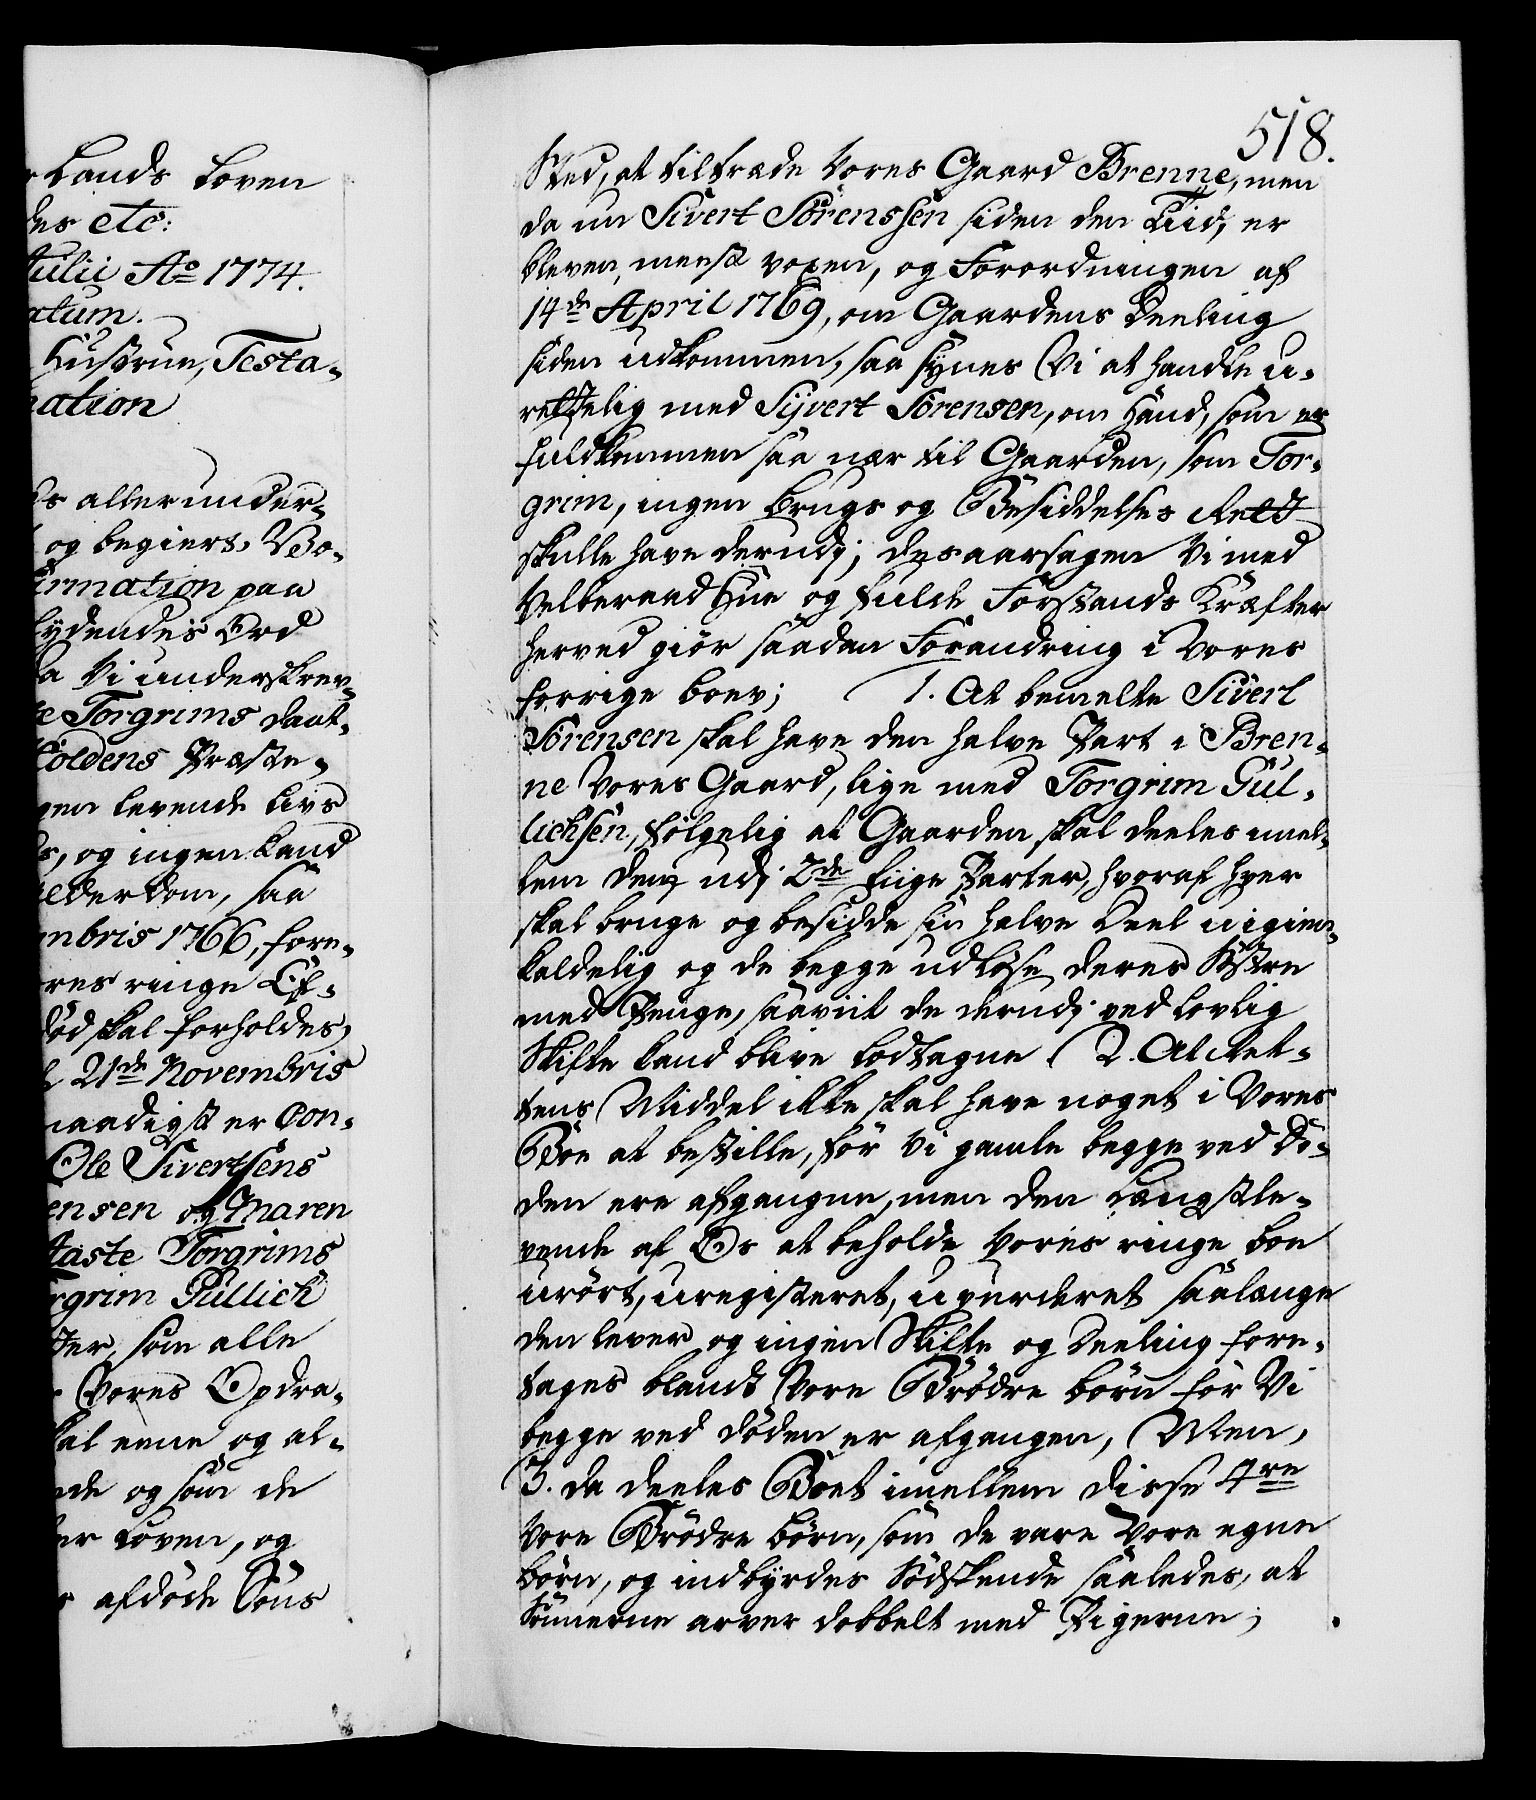 r Lands Loven
des etc:
Julii Ao 1774.
atum.
Hustrue, Testa-
ation
Os allerunder-
og begiert, Vo-
irmation paa
lydendes Ord
a Vi underskrev-
te Torgrims Daat-
Koldens Præste-
gen levende Livs
s, og ingen Land
elderdom, saa
mbris 1766, fore-
res ringe Ef-
død skal forholdes,
21de Novembris
naadigst er Con-
Ole Sivertsens
ensen og Maren
Aaste Torgrims
rgrim Gullich
ter, som alle
Vores Opdra-
kal eene og al-
de og som de
er Loven, og
afdøde Søns
518.
Sted, at tiltræde Vores Gaard Brenne, men
da nu Sivert Sörenssen siden den Tiid, er
bleven meest voxen, og Forordningen af
14de April 1769, om Gaardens Deeling
siden udkommen, saa synes Vi at handle u-
rettelig med Sijvert Sörensen, om Hand, som er
fuldkommen saa nær til Gaarden, som Tor-
grim, ingen Brugs og Besiddelses Rett
skulle have derudj; desaarsagen Vi med
Velberaad Hue og fulde Forstands Kræfter
herved giör saadan Forandring i Vores
forrige brev; 1. At bemelte Sivert
Sörensen skal have den halve Part i Bren-
ne Vores Gaard, lige med Torgrim Gul-
lichsen, følgelig at Gaarden skal deeles imel-
lem dem udj 2de liige Parter, hvoraf hver
skal bruge og besidde sin halve Deel uigien-
kaldelig og de begge udløse deres Søstre
med Penge, saaviit de derudj ved lovlig
Skifte kand blive lodtagne. 2. At Ret-
tens Middel ikke skal have noget i Vores
Boe at bestille, før Vi gamle begge ved Dø-
den ere afgangne, men den Længstle-
vende af Os at beholde Vores ringe boe
urört, uregisteret, uvurderet saalænge
den lever og ingen Skifte og Deeling fore-
tages blandt Vore Brödre børn før Vi
begge ved døden er afgangen, Men,
3. da deeles Boet imellem disse 4re
Vore Brödre børn, som de vare Vore egne
børn, og indbyrdes Södskende saaledes, at
Sønnerne arver dobbelt med Pigerne;